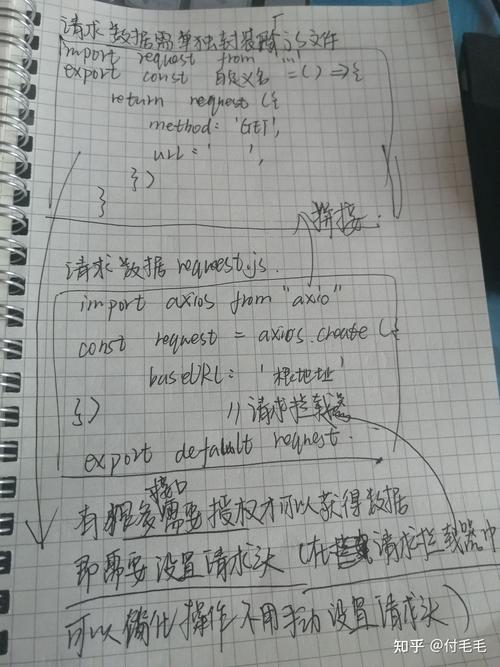 请求数据需单独封装 js文件
import request from "..."
export const 自定义名 = () => {
return request ({
method: 'GET',
url: ' ',
})
}
拼接.
请求数据 request.js.
import axios from "axio"
const request = axios.create ({
baseURL: '根地址'
}) // 请求拦截器
export default request.
接口
有很多需要授权才可以获得数据
即需要设置请求头 (在 请求拦截器中
可以 操作不用手动设置请求头)
知乎 @付毛毛